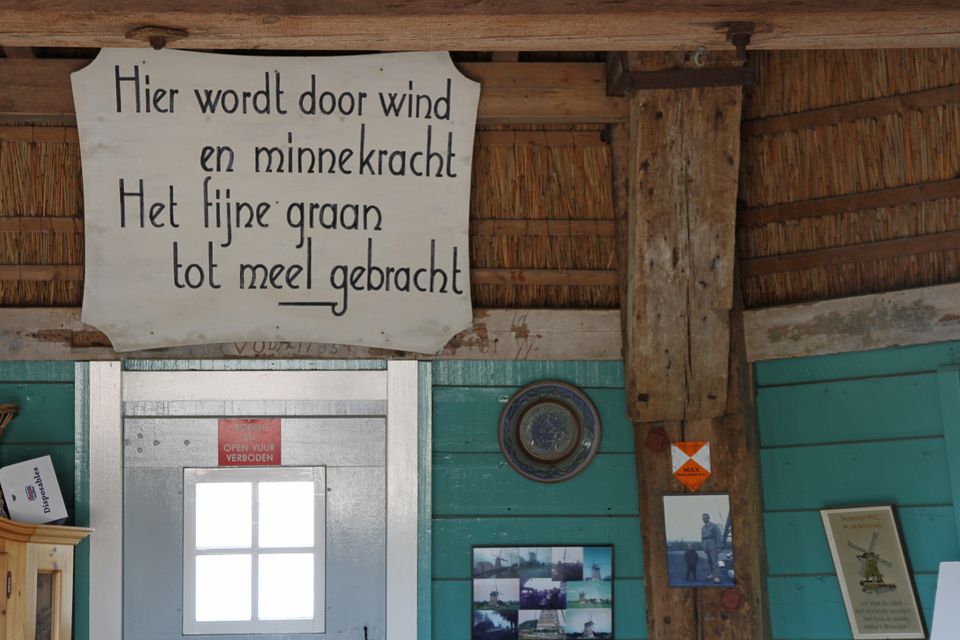 Hier wordt door wind
en minnekracht
Het fijne graan
tot meel gebracht
ROKEN
EN
OPEN VUUR
VERBODEN
Disposables
MAX